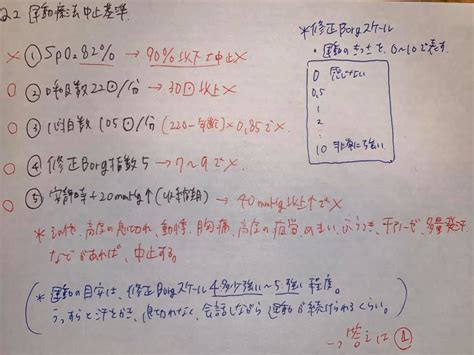 22 運動療法中止基準.
× ① SpO₂ 82% → 90%以下で中止 ×
○ ② 呼吸数 22回/分 → 30回以上 ×
○ ③ 心拍数 105回/分 (220-年齢)×0.85で×
○ ④ 修正Borg指数5 → 7~9で×
○ ⑤ 安静時+20mmHg↑(収縮期) → 40mmHg以上↑で×
*その他、高度の息切れ、動悸、胸痛、高度の疲労、めまい、ふらつき、チアノーゼ、多量発汗
などがあれば、中止する。
(*運動の目安は、修正Borgスケール4 多少強い~5 強い 程度。
うっすらと汗をかき、息切れなく、会話しながら運動が続けられるくらい。)
→ 答えは ①
*修正Borgスケール
・運動のきつさを0~10で表す.
0 感じない
0.5
1
2
:
10 非常に強い